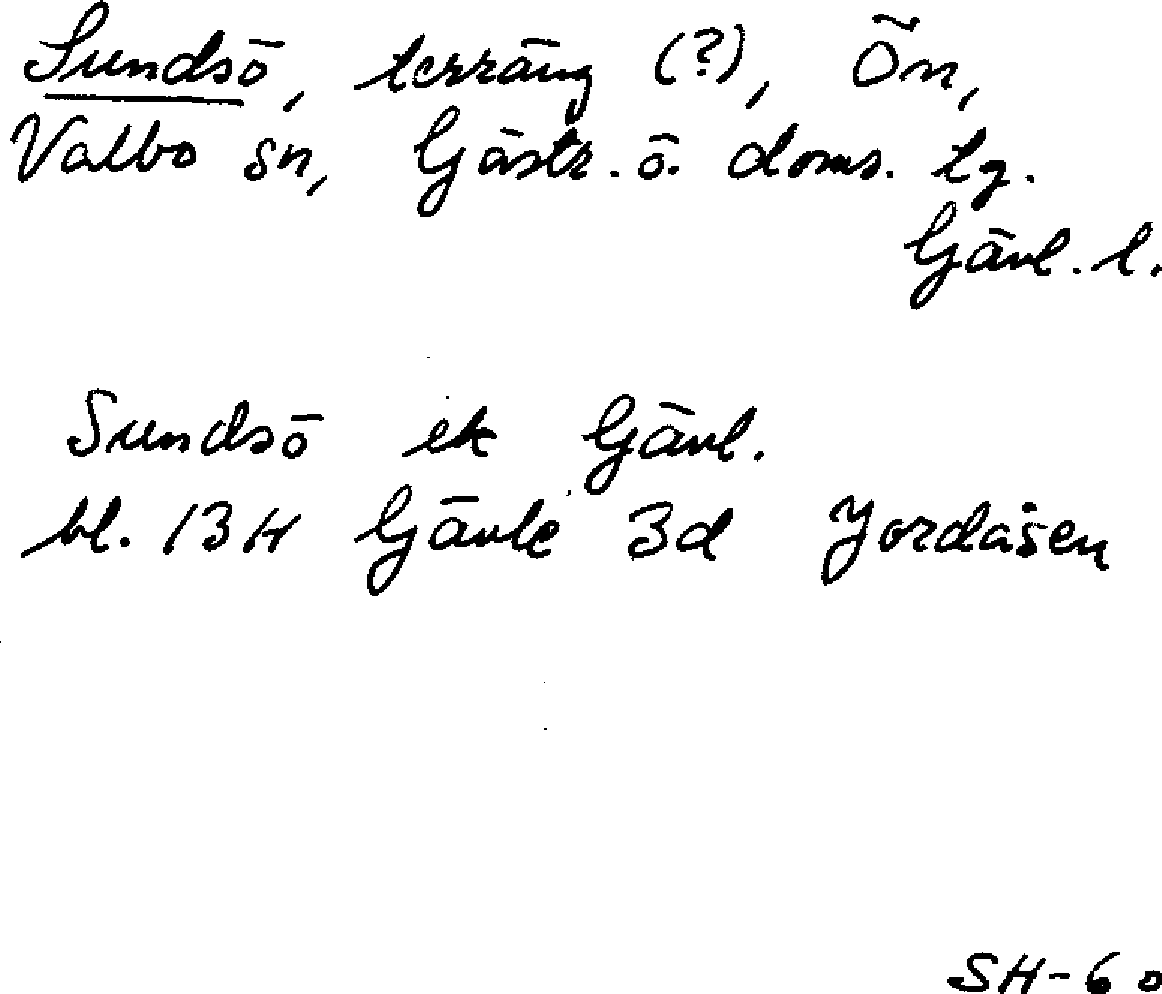 Sundsö, terräng (?), Ön,
Valbo sn, Gästr. ö. doms. tg.
Gävl. l.
Sundsö ek Gävl.
bl. 13H Gävle 3d Jordåsen
SH-60